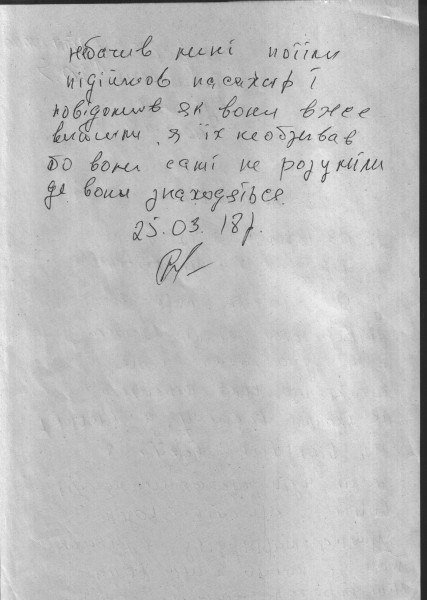 небачив мині
підійшов пасажир і
повідомив як вони вже
вийшли я їх необзивав
бо вони самі не розуміли
де вони знаходяться.
25.03.18р.